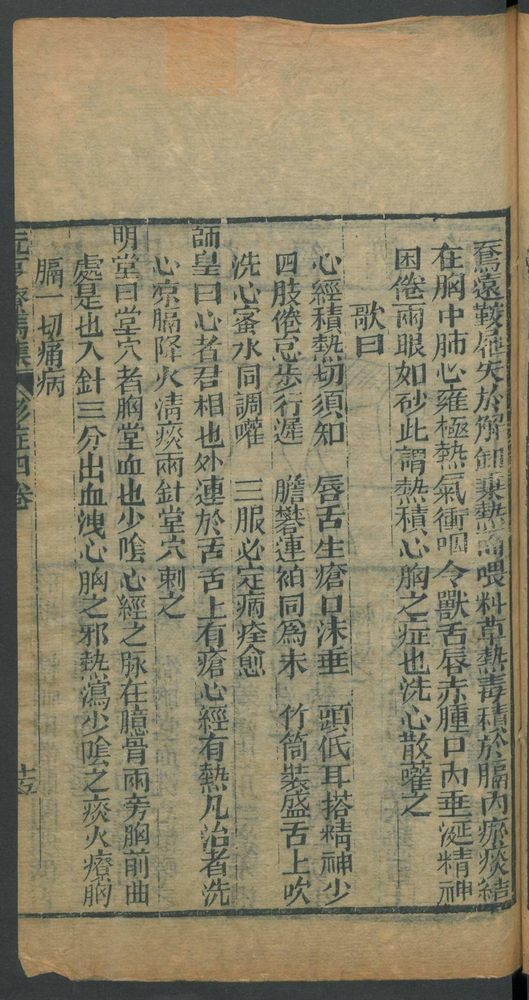 騖遠鞍屜失於解卸乘熱而喂料草熱毒積於膈內瘀痰結
在胸中肺心雍極熱氣衝咽令獸舌唇赤腫口內垂涎精神
困倦兩眼如砂此謂熱積心胸之症也洗心散灌之
歌曰
心經積熱切須知　唇舌生瘡口沫垂　頭低耳搭精神少
四肢倦怠步行遲　膽礬連柏同為末　竹筒裝盛舌上吹
洗心蜜水同調嚾　三服必定病痊愈
師皇曰心者君相也外連於舌舌上有瘡心經有熱凡治者洗
心凉膈降火清痰兩針堂穴刺之
明堂曰堂穴者胸堂血也少陰心經之脉在臆骨兩旁胸前曲
處是也入針三分出血洩心胸之邪熱瀉少陰之痰火療胸
膈一切痛病
元亨療馬集　四卷